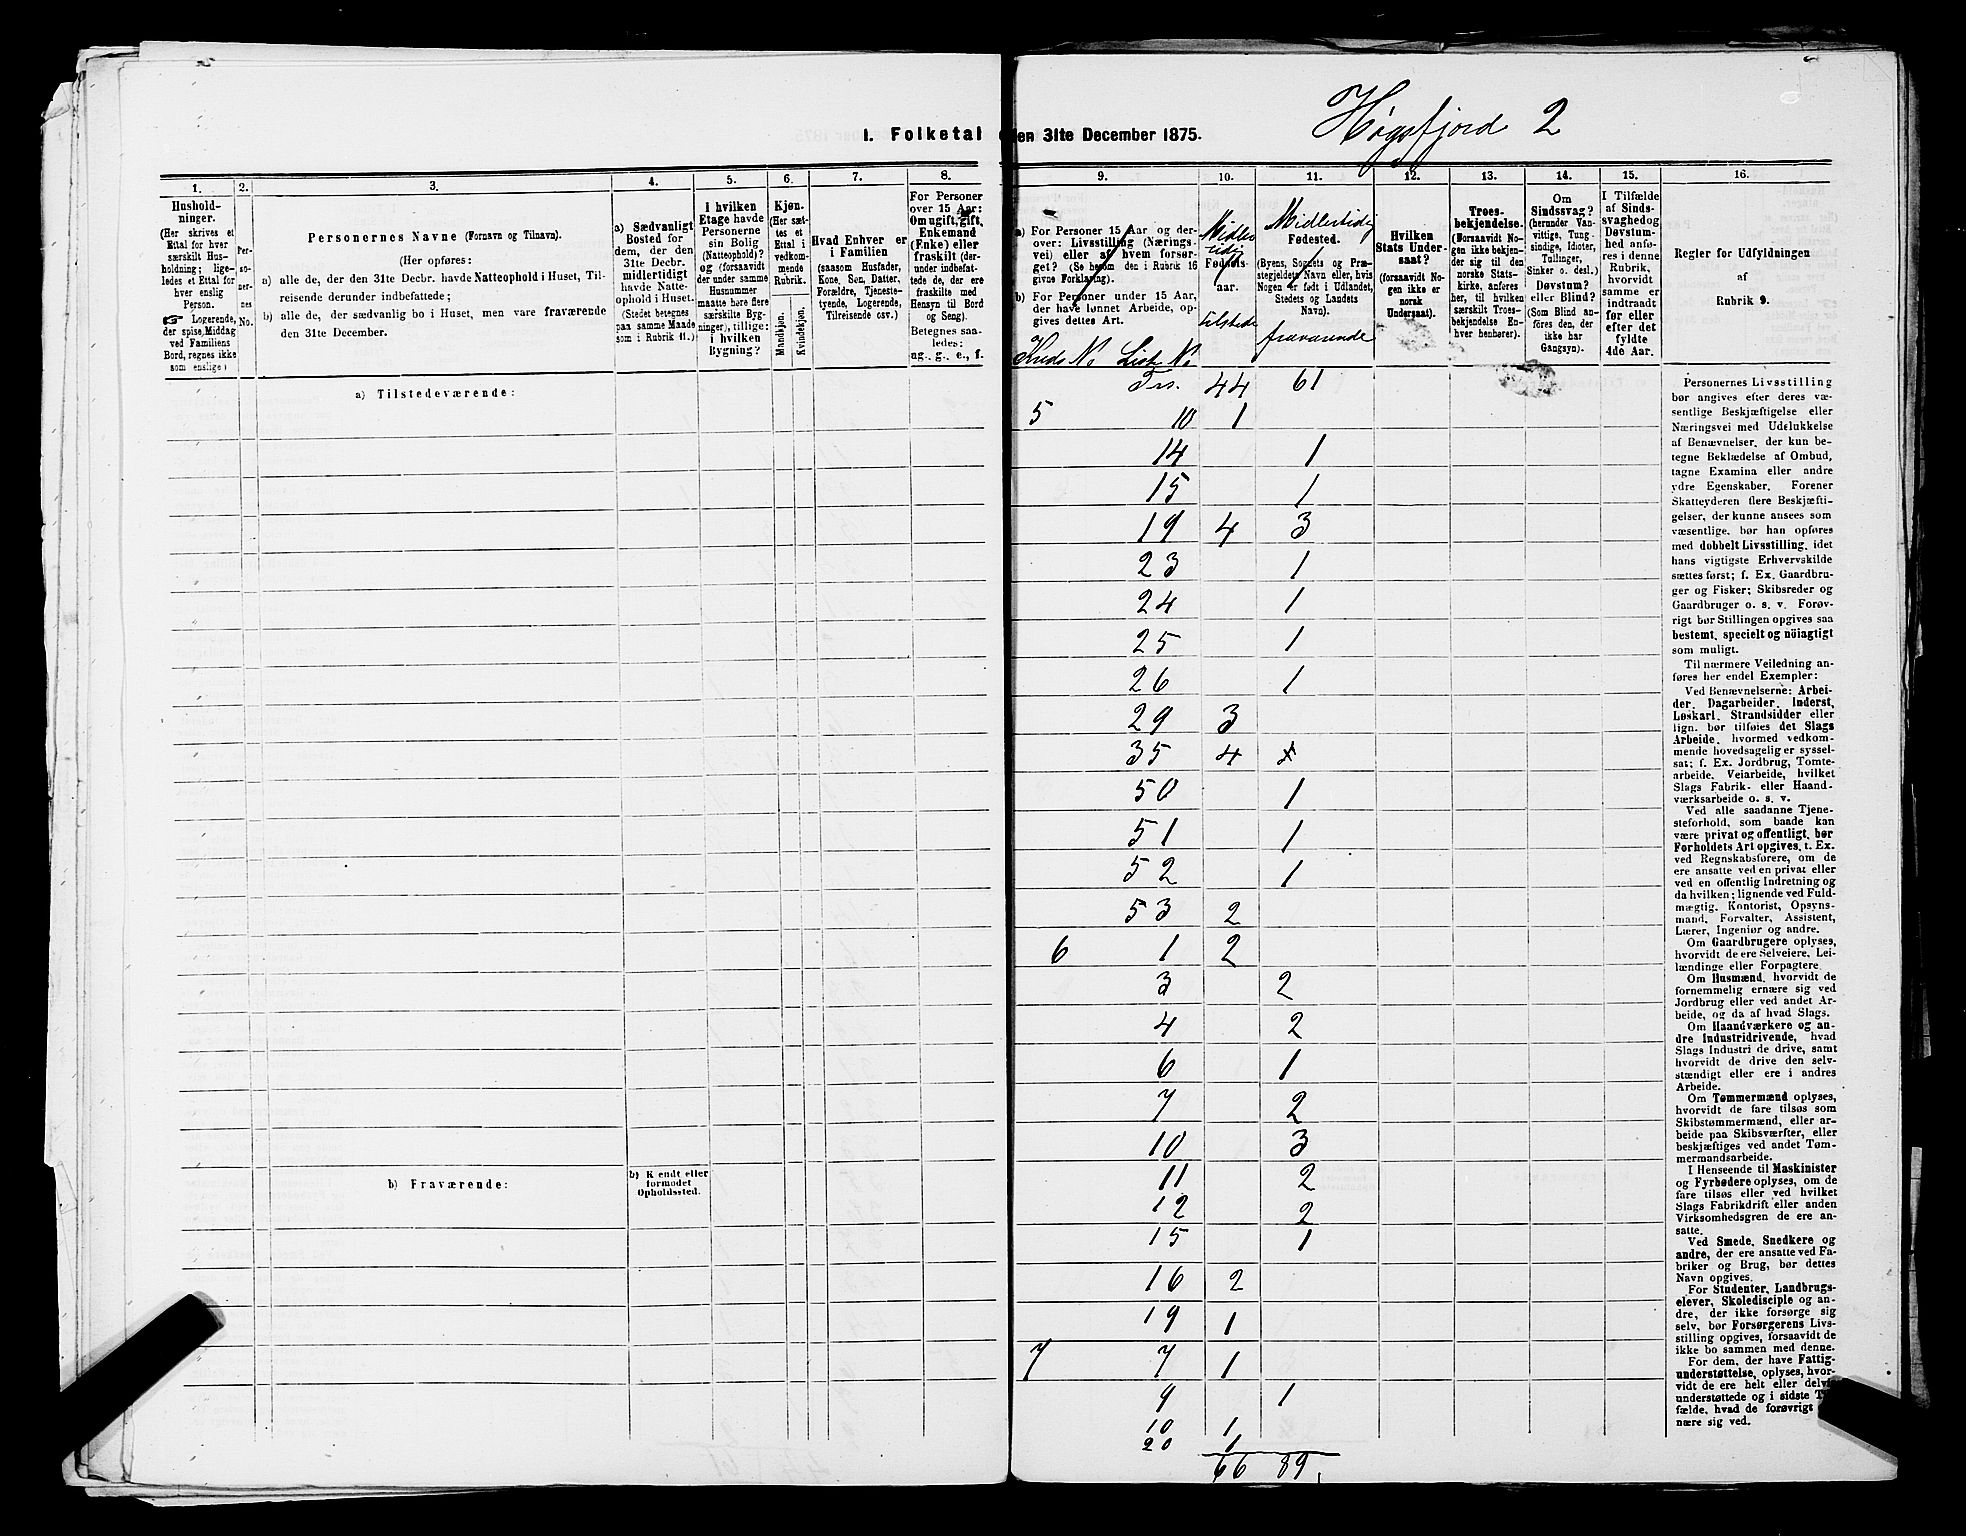 I. Folketal den 31te December 1875.
Høgsfjord 2
1.
2.
3.
4.
5.
6.
7.
8.
9.
10.
11.
12.
13.
14.
15.
16.
Hushold-
ninger.
(Her skrives et
Ettal for hver
særskilt Hus-
holdning; lige-
ledes et Ettal for
hver enslig
Person.
☞ Logerende,
der spise Middag
ved Familiens
Bord, regnes ikke
som enslige)
Per-
so-
ner-
nes
No.
Personernes Navne (Fornavn og Tilnavn).
(Her opføres:
a) alle de, der den 31te Decbr. havde Natteophold i Huset, Til-
reisende derunder indbefattede;
b) alle de, der sædvanlig bo i Huset, men vare fraværende
den 31te December.
a) Sædvanligt
Bosted for
dem, der den
31te Decbr.
midlertidigt
havde Natte-
ophold i Huset.
(Stedet betegnes
paa samme Maade
som i Rubrik 11.)
I hvilken
Etage havde
Personerne
sin Bolig
(Natteophold)?
og (forsaavidt
der under samme
Husnummer
maatte høre flere
særskilte Byg-
ninger), tillige:
i hvilken
Bygning?
Kjøn.
(Her sæt-
tes et
Ettal i
vedkom-
mende
Rubrik.
Mandkjøn.
Kvindekjøn.
Hvad Enhver er
i Familien
(saasom Husfader,
Kone, Søn, Datter,
Forældre, Tjeneste-
tyende, Logerende,
Tilreisende osv.)
For Personer
over 15 Aar:
Om ugift, gift,
Enkemand
(Enke) eller
fraskilt (der-
under indbefat-
tede de, der ere
fraskilte med
Hensyn til Bord
og Seng)
Betegnes saa-
ledes:
ag., g., e., f.
a) For Personer 15 Aar og der-
over: Livsstilling (Nærings-
vei) eller af hvem forsør-
get? (Se herom den i Rubrik 16
givne Forklaring.)
b) For Personer under 15 Aar,
der have lønnet Arbeide, op-
gives dettes Art.
Kreds No List No
Midler
tidig
Fødsels-
aar.
tilstede
Midlertidig
Fødested.
(Byens, Sognets og Præ-
stegjeldets Navn eller, hvis
Nogen er født i Udlandet,
Stedets og Landets
Navn).
fraværende
Hvilken
Stats Under-
saat?
(forsaavidt No-
gen ikke er
norsk
Undersaat).
Troes-
bekjendelse.
(Forsaavidt No-
gen ikke bekjen-
der sig til den
norske Stats-
kirke, anføres
her, til hvilken
særskilt Troes-
bekjendelse En-
hver henhører).
Om
Sindssvag?
(herunder Van-
vittige, Tung-
sindige, Idioter,
Tullinger,
Sinker o. desl.)
Døvstum?
eller Blind?
(Som Blind an-
føres den, der
ikke har
Gangsyn).
I Tilfælde
af Sinds-
svaghed og
Døvstum-
hed anfø-
res i denne
Rubrik,
hvorvidt
samme er
indtraadt
før eller
efter det
fyldte
4de Aar.
Regler for Udfyldningen
af
Rubrik 9.
a) Tilstedeværende:
b) Fraværende:
b) Kjendt eller
formodet
Opholdssted.
Trs. 44 61
5 10 1
14 1
15 1
19 4 3
23 1
24 1
25 1
26 1
29 3
35 4
50 1
51 1
52 1
53 2
6 1 2
3 2
4 2
6 1
7 2
10 3
11 2
12 2
15 1
16 2
19 1
7 7 1
9 1
10 1
20 1
66 89
Personernes Livsstilling
bør angives efter deres væ-
sentlige Beskjæftigelse eller
Næringsvei med Udelukkelse
af Benævnelser, der kun be-
tegne Beklædelse af Ombud,
tagne Examina eller andre
ydre Egenskaber. Forener
Skatteyderen flere Beskjæfti-
gelser, der kunne ansees som
væsentlige, bør han opføres
med dobbelt Livsstilling, idet
hans vigtigste Erhvervskilde
sættes først; f. Ex. Gaardbru-
ger og Fisker; Skibsreder og
Gaardbruger o. s. v. Forøv-
rigt bør Stillingen opgives saa
bestemt, specielt og nöiagtigt
som muligt.
Til nærmere Veiledning an-
føres her endel Exempler:
Ved Benævnelserne: Arbei-
der, Dagarbeider, Inderst,
Løskarl, Strandsidder eller
lign. bør tilføies det Slags
Arbeide, hvormed vedkom-
mende hovedsagelig er syssel-
sat; f. Ex. Jordbrug, Tomte-
arbeide, Veiarbeide, hvilket
Slags Fabrik- eller Haand-
værksarbeide o. s. v.
Ved alle saadanne Tjene-
steforhold, som baade kan
være privat og offentligt, bør
Forholdets Art opgives, t. Ex.
ved Regnskabsførere, om de
ere ansatte ved en privat eller
ved en offentlig Indretning og
da hvilken; lignende ved Fuld-
mægtig, Kontorist, Opsyns-
mand, Forvalter, Assistent,
Lærer, Ingeniør og andre.
Om Gaardbrugere oplyses,
hvorvidt de ere Selveiere, Lei-
lændinge eller Forpagtere.
Om Husmænd, hvorvidt de
fornemmelig ernære sig ved
Jordbrug eller ved andet Ar-
beide, og da af hvad Slags.
Om Haandværkere og an-
dre Industridrivende, hvad
Slags Industri de drive, samt
hvorvidt de drive den selv-
stændigt eller ere i andres
Arbeide.
Om Tømmermænd oplyses,
hvorvidt de fare tilsøs som
Skibstømmermænd, eller ar-
beide paa Skibsværfter, eller
beskjæftiges ved andet Tøm-
mermandsarbeide.
I Henseende til Maskinister
og Fyrbødere oplyses, om de
fare tilsøs eller ved hvilket
Slags Fabrikdrift eller anden
Virksomhedsgren de ere an-
satte.
Ved Smede, Snedkere og
andre, der ere ansatte ved Fa-
briker og Brug, bør dettes
Navn opgives.
For Studenter, Landbrugs-
elever, Skoledisciple og an-
dre, der ikke forsørge sig
selv, bør Forsørgerens Livs-
stilling opgives, forsaavidt de
ikke bo sammen med denne.
For dem, der have Fattig-
understøttelse, oplyses, hvor-
vidt de ere helt eller delvis
understøttede og i sidste Til-
fælde, hvad de forøvrigt
nære sig ved.